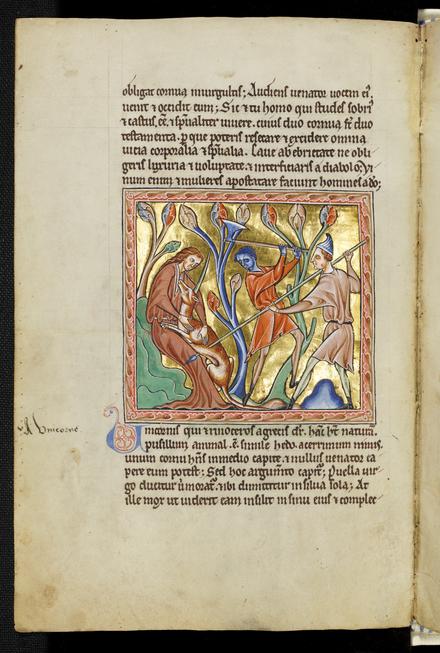 obligat cornua in uirgultis; Audiens uenator uocem ei'.
uenit & occidit eum; Sic & tu homo qui studes sobri'
& castus. ee. & spualiter uiuere. cuius duo cornua st duo
testamenta. p que poteris resecare & excidere omnia
uicia corporalia & spualia. Caue ab ebrietate ne obli
geris luxuria & uoluptate. & interficiaris a diabolo. Vi
num enim & mulieres apostatare faciunt homines a do;
A Vnicorne.
Unicornis qui & rinoceros a grecis dr. hanc ht naturam.
pusillum animal. e simile hedo. acerrimum nimis.
unum cornu hns in medio capite. & nullus uenator ca
pere eum potest; Sed hoc argumto capit'; Puella uir
go ducitur u morat'. & ibi dimittitur in silua sola; At
ille mox ut uiderit eam insilit in sinu eius & complec